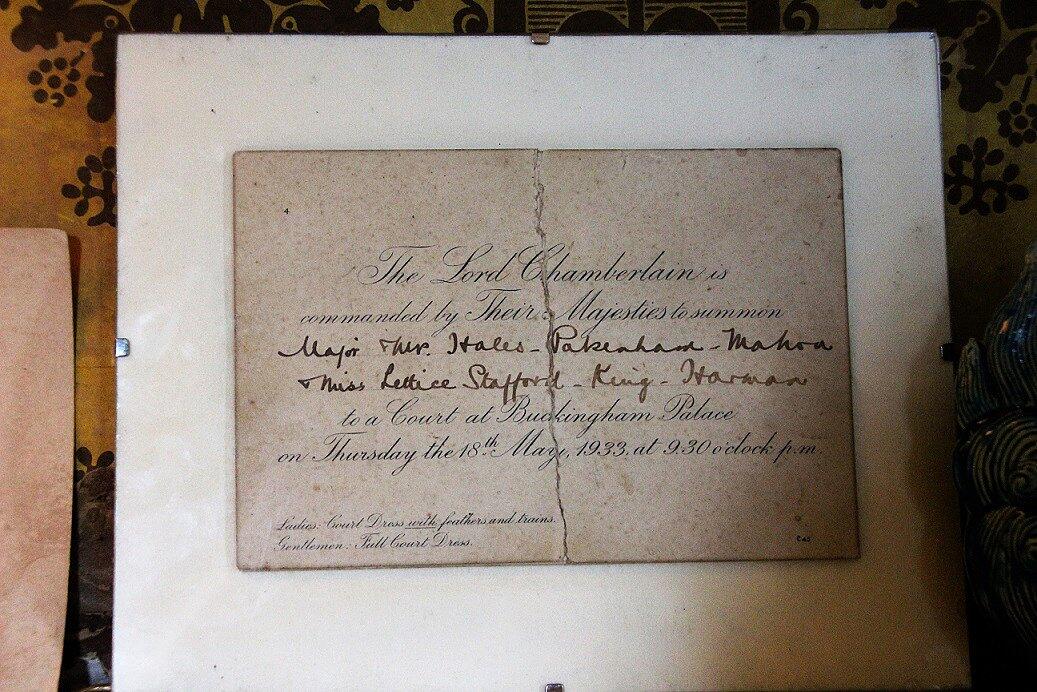 4
The Lord Chamberlain is
commanded by Their Majesties to summon
Major & Mrs. Hales-Pakenham-Mahon
& Miss Lettice Stafford-King-Harman
to a Court at Buckingham Palace
on Thursday the 18th May, 1933, at 9.30 o'clock p.m.
Ladies: Court Dress with feathers and trains.
Gentlemen: Full Court Dress.